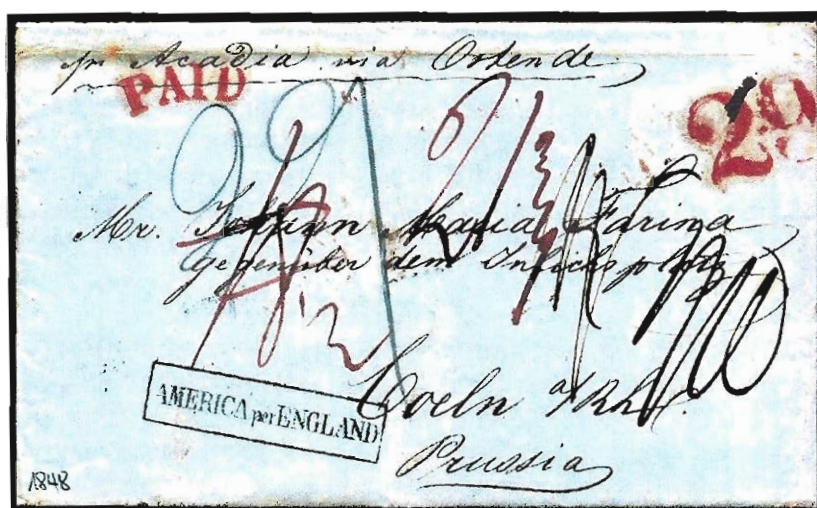 pr Acadia via Ostende
PAID
29
Mr. Johann Maria Farina
gegenüber dem Julichsplatz
AMERICA per ENGLAND
Coeln a/Rh.
Prussia
1848